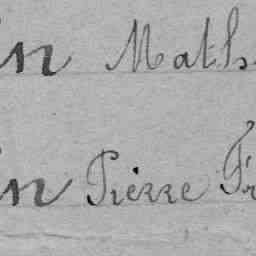 in Math
in Pierre Fr